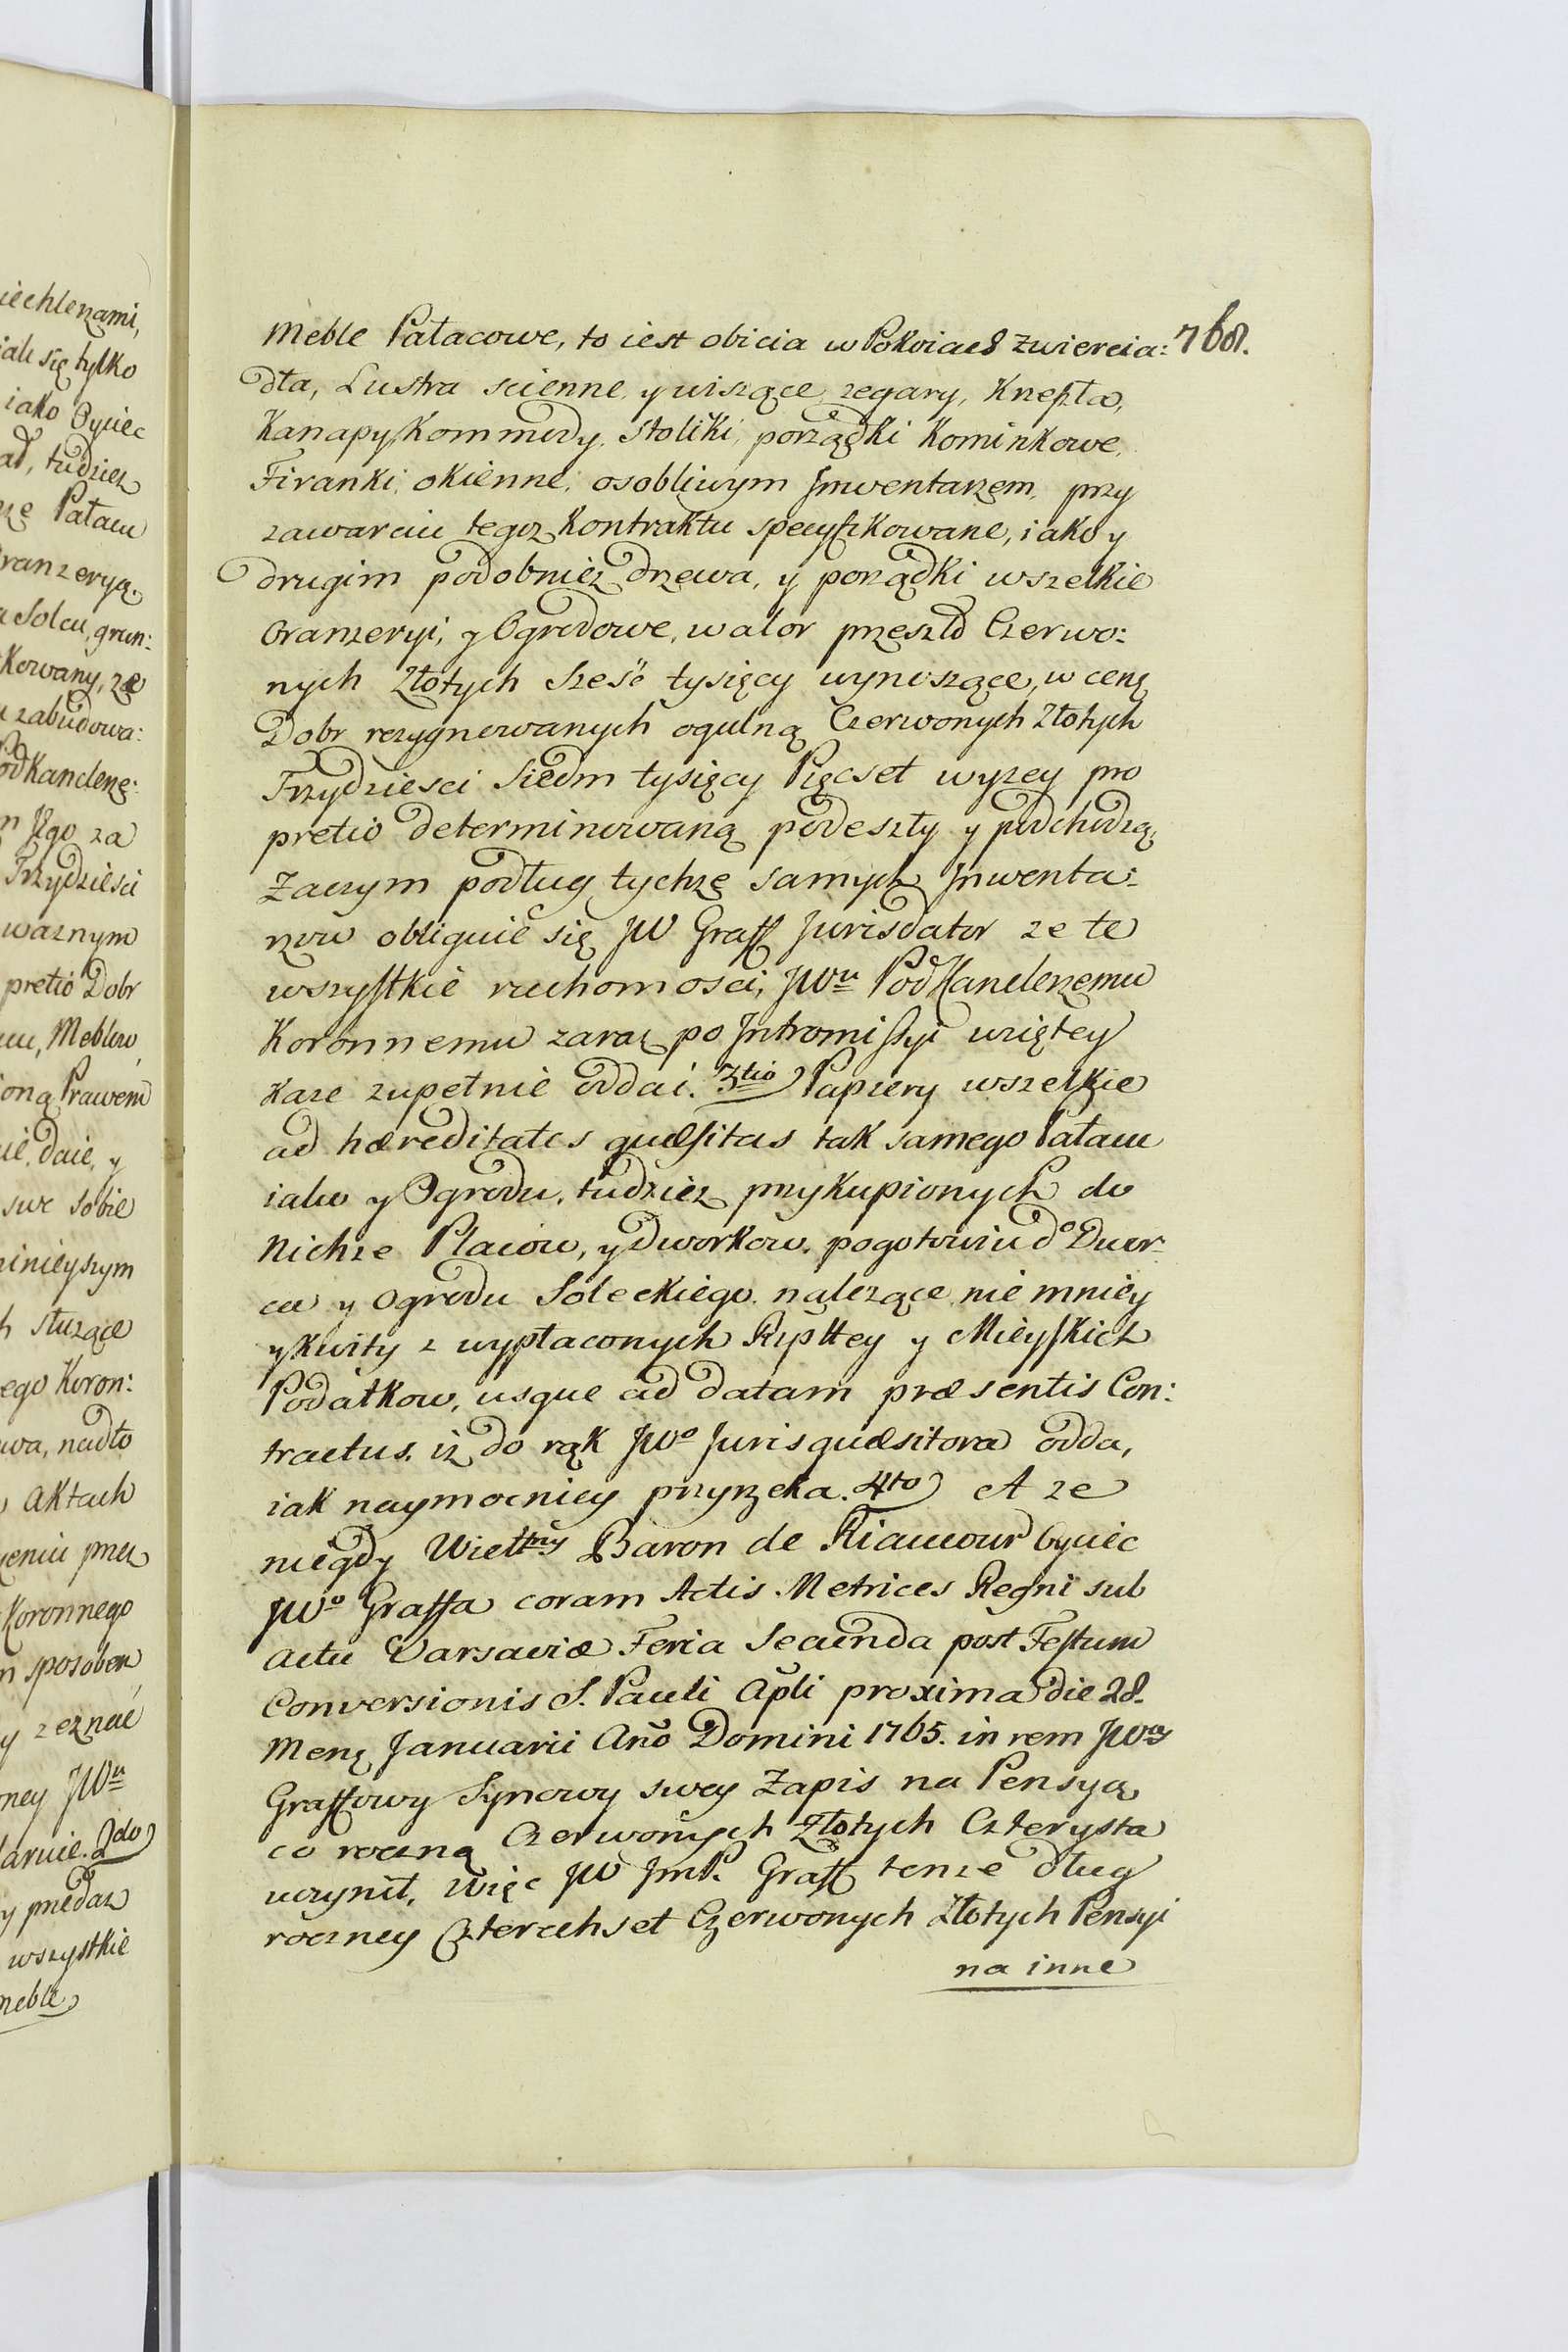 iechlerzami,
iak się tylko
iako Oyciec
ad, tudziez
Pałacu
ranzeryą.
Solcu, grun:
kowany, ze
zabudowa:
Podkanclerze:
Jgo za
Trzydziesci
waznym
pretio Dobr
Meblow
oną Prawem
daie, y
swe sobie
ninieyszym
służące
ego Koron:
wa, nadto
Aktach
zeniu przez
Koronnego
sposobem
y zeznać
ney JWu
2do
y przedaz
wszystkie
meble
Meble Pałacowe, to iest obicia w Pokoiach zwiercia: 768.
dła, Lustra scienne y wiszące, zegary, Krzesła,
Kanapy, Kommody, Stoliki, porządki Kominkowe,
Firanki okienne, osobliwym Jnwentarzem, przy
zawarciu tegoz Kontraktu specyfikowane, iako y
drugim podobniez drzewa, y porządki wszelkie
Oranzeryi, y Ogrodowe, walor przeszło Czerwo:
nych Złotych Sześć tysięcy wynoszące, w cenę
Dobr rezygnowanych ogulną Czerwonych Złotych
Trzydziesci Siedm tysięcy Pięcset wyzey pro
pretio determinowaną podeszły y podchodzą,
Zaczym podług tychze samych Jnwenta:
rzow obliguie się JW Graff Jurisdator ze te
wszystkie ruchomosci, JWu PodKanclerzemu
Koronnemu zaraz po Jntromissyi wziętey
kaze zupełnie oddać. 3tio Papiery wszelkie
ad hæreditates quæsitas tak samego Pałacu
iako y Ogrodu, tudziez przykupionych do
Nichze Placow, y Dworkow, pogotowiu do Dwor:
ca y Ogrodu Soleckiego nalezące, nie mniey
y kwity z wypłaconych Rzpltey y Mieyskich
Podatkow, usque ad datam præsentis Con:
tractus, iz do rąk JWo Jurisquæsitora odda,
iak naymocniey przyrzeka. 4to A ze
niegdy Wielmy Baron de Riaucour Oyciec
JWo Graffa coram Actis Metrices Regni sub
actu Varsaviæ Feria Secunda post Festum
Conversionis S. Pauli Apli proxima die 28.
Mens Januarii Ano Domini 1765. in rem JWey
Graffowy Synowy swey Zapis na Pensyą
co roczną Czerwonych Złotych Czterysta
uczynił, więc JW JmP. Graff tenze dług
roczney Czterechset Czerwonych Złotych Pensyi
na inne